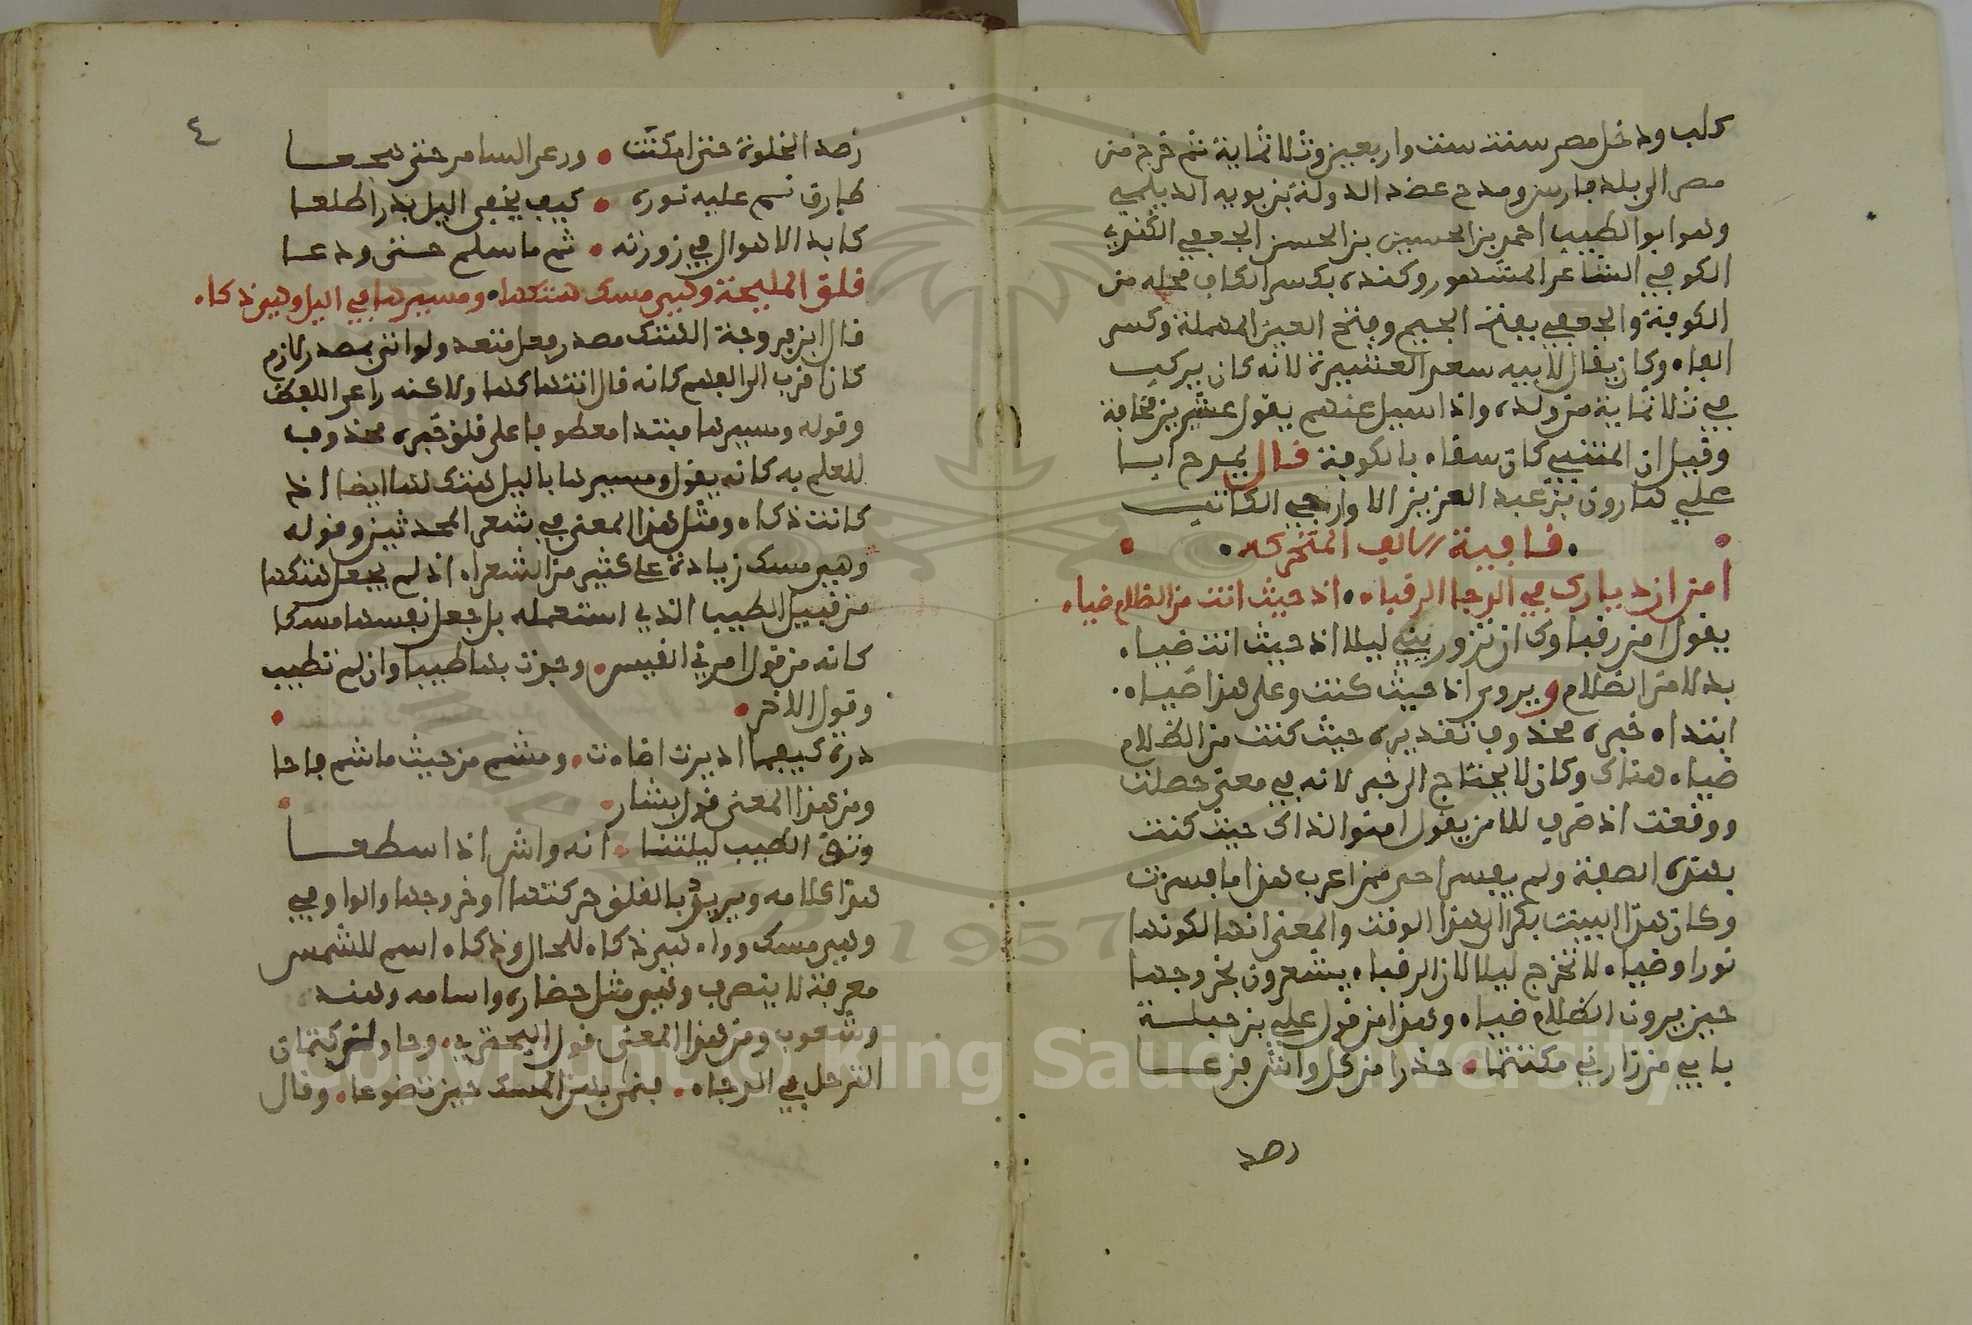 كلب ودخل مصر سنة ست واربعين وثلاثماية ثم خرج من
مصر الى بلد فارس ومدح عضد الدولة بن بويه الديلمي
وهو ابو الطيب احمد بن الحسين بن الحسن الجعفي الكندي
الكوفي الشاعر المشهور وكنده بكسر الكاف محله من
الكوفة والجعفي بضم الجيم وفتح العين المهملة وكسر
الفاء وكان يقال لابيه سعد العشيرة لانه كان يركب
في ثلاثماية من ولده واذا سيل عنهم يقول عشيرتي مخافة
وقيل ان المتنبي كان سقاء بالكوفة قال يمدح ابا
علي هارون بن عبد العزيز الاوارجي الكاتب
قافية الالف المتحركه
امن ازديارك في الدجا الرقباء اذ حيث انت من الظلام ضياء
يقول امن رقباوك ان تزوريني ليلا اذ حيث انت ضياء
بدلا من الظلام ويروى اذ حيث كنت وعلى هذا ضياء
ابتداء خبره محذوف تقديره حيث كنت من الظلام
ضياء هناك وكان لا يحتاج الى خبر لانه في معنى حصلت
ووقعت اذ ظرف لامن يقول امنوا اذ ذاك حيث كنت
بهذه الصفة ولم يفسر احد ممن اعرب هذا ما فسرت
وكان هذا البيت بكرا الى هذا الوقت والمعنى انها لكونها
نورا وضياء لا تخرج ليلا لان الرقباء يشعرون بخروجها
حين يرون الظلام ضياء وهذا من قول علي بن جبلة
بابي من زارني مكتتما حذرا من كل واش فزعا
رصد
٤
رصد الخلوة حتى امكنت ورعى السامر حتى هجعا
طارق نم عليه نوره كيف يخفي اليل بدرا طلعا
كابد الاهوال في زورته ثم ما سلم حتى ودعا
قلق المليحة وهي مسك هتكها ومسيرها في اليل وهي ذكاء
قال ابن فروجة الهتك مصدر فعل متعد ولو اتى بمصدر لازم
كان اقرب الى الفهم كانه قال انتهاكها ولاكنه راعى اللفظ
وقوله ومسيرها مبتدا معطوفا على قلق خبره محذوف
للعلم به كانه يقول ومسيرها باليل هتك لها ايضا اذ
كانت ذكاء ومثل هذا المعنى في شعر المحدثين وقوله
وهي مسك زيادة على كثير من الشعراء اذ لم يجعل هتكها
من قبل الطيب الذي استعمله بل جعل نفسها مسكا
كانه من قول امرئ القيس وجدت بها طيبا وان لم تطيب
وقول الاخر
درة كيفما اديرت اضاءت ومشم من حيث ما شم فاحا
ومن هذا المعنى قول بشار
وتوق الطيب ليلتنا انه واش اذا سطعا
هذا كلامه ويريد بالقلق حركتها وخروجها والواو في
وهي مسك وواو هي ذكاء للحال وذكاء اسم للشمس
معرفة لا ينصرف وهي مثل حضار واسامه وهند
وشعوب ومن هذا المعنى قول البحتري وحاولن كتمان
الترحل في الدجاء فنم بهن المسك حين تضوعا وقال
Copyright © King Saud University
1957